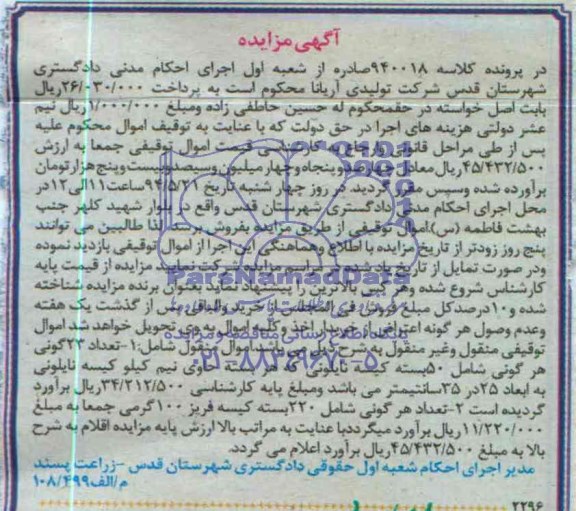 آگهی مزایده
در پرونده کلاسه ۹۴۰۰۱۸صادره از شعبه اول اجرای احکام مدنی دادگستری
شهرستان قدس شرکت تولیدی آریانا محکوم است به پرداخت ۲۶/۰۳۰/۰۰۰ریال
بابت اصل خواسته در حقمحکوم له حسین حاطفی زاده ومبلغ ۱/۰۰۰/۰۰۰ریال نیم
عشر دولتی هزینه های اجرا در حق دولت که با عنایت به توقیف اموال محکوم علیه
پس از طی مراحل قانونی وارجاع به کارشناسی قیمت اموال توقیفی جمعا به ارزش
۴۵/۴۳۲/۵۰۰ریال معادل چهارصدوپنجاه وچهار میلیون وسیصدوبیست وپنج هزارتومان
برآورده شده وسپس مقرر گردید در روز چهار شنبه تاریخ ۹۴/۵/۲۱ساعت۱۱الی۱۲در
محل اجرای احکام مدنی دادگستری شهرستان قدس واقع در بلوار شهید کلهر جنب
بهشت فاطمه (س)اموال توقیفی از طریق مزایده بفروش برسد لذا طالبین می توانند
پنج روز زودتر از تاریخ مزایده با اطلاع وهماهنگی این اجرا از اموال توقیفی بازدید نموده
ودر صورت تمایل از تاریخ یاد شده در مراسم مزایده شرکت نمایند مزایده از قیمت پایه
کارشناس شروع شده وهر کسی بالاترین قیمت را پیشنهاد نماید بعنوان برنده مزایده شناخته
شده و۱۰درصدکل مبلغ فروش فی المجلس از خریدار والباقی پس از گذشت یک هفته
وعدم وصول هر گونه اعتراض از خریدار اخذ وکلیه اموال به وی تحویل خواهد شد اموال
توقیفی منقول وغیر منقول به شرح ذیل می باشد اموال منقول شامل:۱-تعداد ۲۳گونی
هر گونی شامل ۵۰بسته کیسه نایلونی که هر بسته حاوی نیم کیلو کیسه نایلونی
به ابعاد ۲۵در ۳۵سانتیمتر می باشد ومبلغ پایه کارشناسی ۳۴/۲۱۲/۵۰۰ریال برآورد
گردیده است ۲-تعداد هر گونی شامل ۲۲۰بسته کیسه فریز ۱۰۰گرمی جمعا به مبلغ
۱۱/۲۲۰/۰۰۰ریال برآورد میگرددبا عنایت به مراتب بالا ارزش پایه مزایده اقلام به شرح
بالا به مبلغ ۴۵/۴۳۲/۵۰۰ریال برآورد اعلام می گردد.
مدیر اجرای احکام شعبه اول حقوقی دادگستری شهرستان قدس -زراعت پسند
م/الف۱۰۸/۴۹۹
۲۲۹۶
ParsNamadData
۰۲۱-۸۸۳۴۹۶۷۰-۵